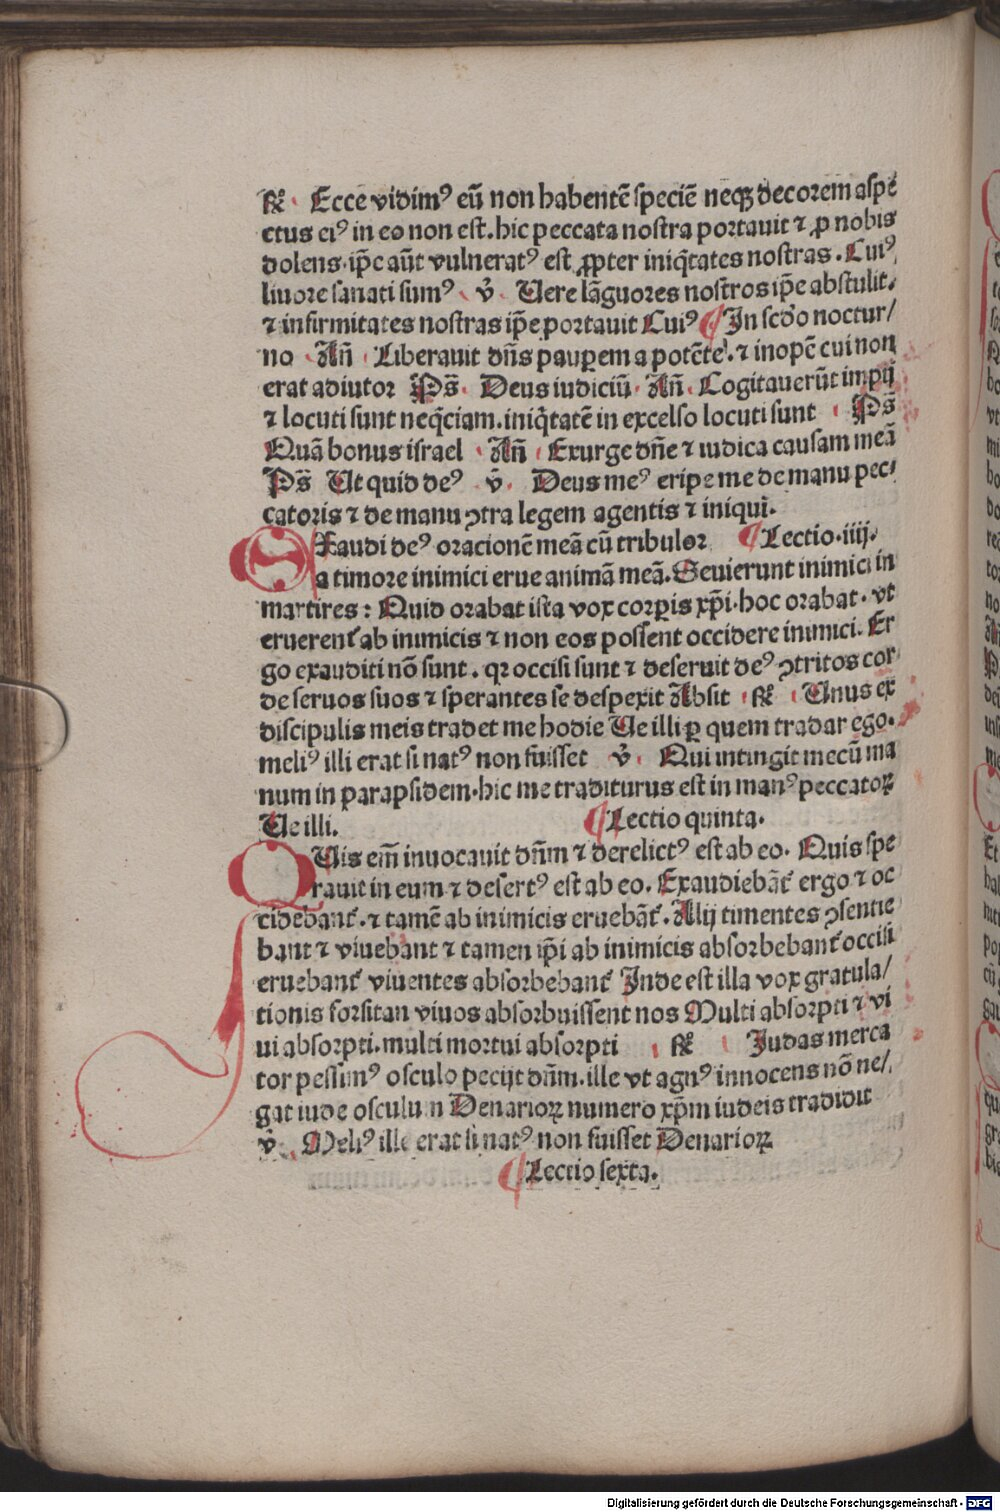 ℟ Ecce vidimꝰ eū non habentē speciē neqꝫ decorem aspe
ctus eiꝰ in eo non est. hic peccata nostra portauit ⁊ ꝓ nobis
dolens. ip̄e aūt vulneratꝰ est ꝓpter iniq̄tates nostras. Cuiꝰ
liuore sanati sumꝰ ℣ Uere lāguores nostros ip̄e abstulit.
⁊ infirmitates nostras ip̄e portauit Cuiꝰ ¶ In scd̄o noctur/
no Añ Liberauit dn̄s pauꝑem a potēte. ⁊ inopē cui non
erat adiutor Ps̄ Deus iudiciū Añ Cogitauerūt impij
⁊ locuti sunt neq̄ciam. iniq̄tatē in excelso locuti sunt Ps̄
Quā bonus israel Añ Exurge dn̄e ⁊ iudica causam meā
Ps̄ Ut quid deꝰ ℣ Deus meꝰ eripe me de manu pec/
catoris ⁊ de manu ꝯtra legem agentis ⁊ iniqui.
Exaudi deꝰ oracionē meā cū tribulor ¶ Lectio .iiij.
a timore inimici erue animā meā. Seuierunt inimici in
martires: Quid orabat ista vox corꝑis xp̄i. hoc orabat. vt
eruerent᷑ ab inimicis ⁊ non eos possent occidere inimici. Er
go exauditi nō sunt. qꝛ occisi sunt ⁊ deseruit deꝰ ꝯtritos cor
de seruos suos ⁊ sperantes se despexit Absit ℟ Unus ex
discipulis meis tradet me hodie Ue illi ꝑ quem tradar ego.
meliꝰ illi erat si natꝰ non fuisset ℣ Qui intingit mecū ma
num in parapsidem. hic me traditurus est in manꝰ peccatoꝝ
Ue illi. ¶ Lectio quinta.
QUis em̄ inuocauit dn̄m ⁊ derelictꝰ est ab eo. Quis spe
rauit in eum ⁊ desertꝰ est ab eo. Exaudiebāt᷑ ergo ⁊ oc
cidebant᷑. ⁊ tamē ab inimicis eruebāt᷑. Alij timentes ꝯsentie
bant ⁊ viuebant ⁊ tamen ip̄i ab inimicis absorbebant᷑ occisi
eruebant᷑ viuentes absorbebant᷑ Inde est illa vox gratula/
tionis forsitan viuos absorbuissent nos Multi absorpti ⁊ vi
ui absorpti. multi mortui absorpti ℟ Judas merca
tor pessimꝰ osculo pecijt dn̄m. ille vt agnꝰ innocens nō ne/
gat iude osculum Denarioꝝ numero xp̄m iudeis tradidit
℣ Meliꝰ illi erat si natꝰ non fuisset Denarioꝝ
¶ Lectio sexta.
Digitalisierung gefördert durch die Deutsche Forschungsgemeinschaft - DFG